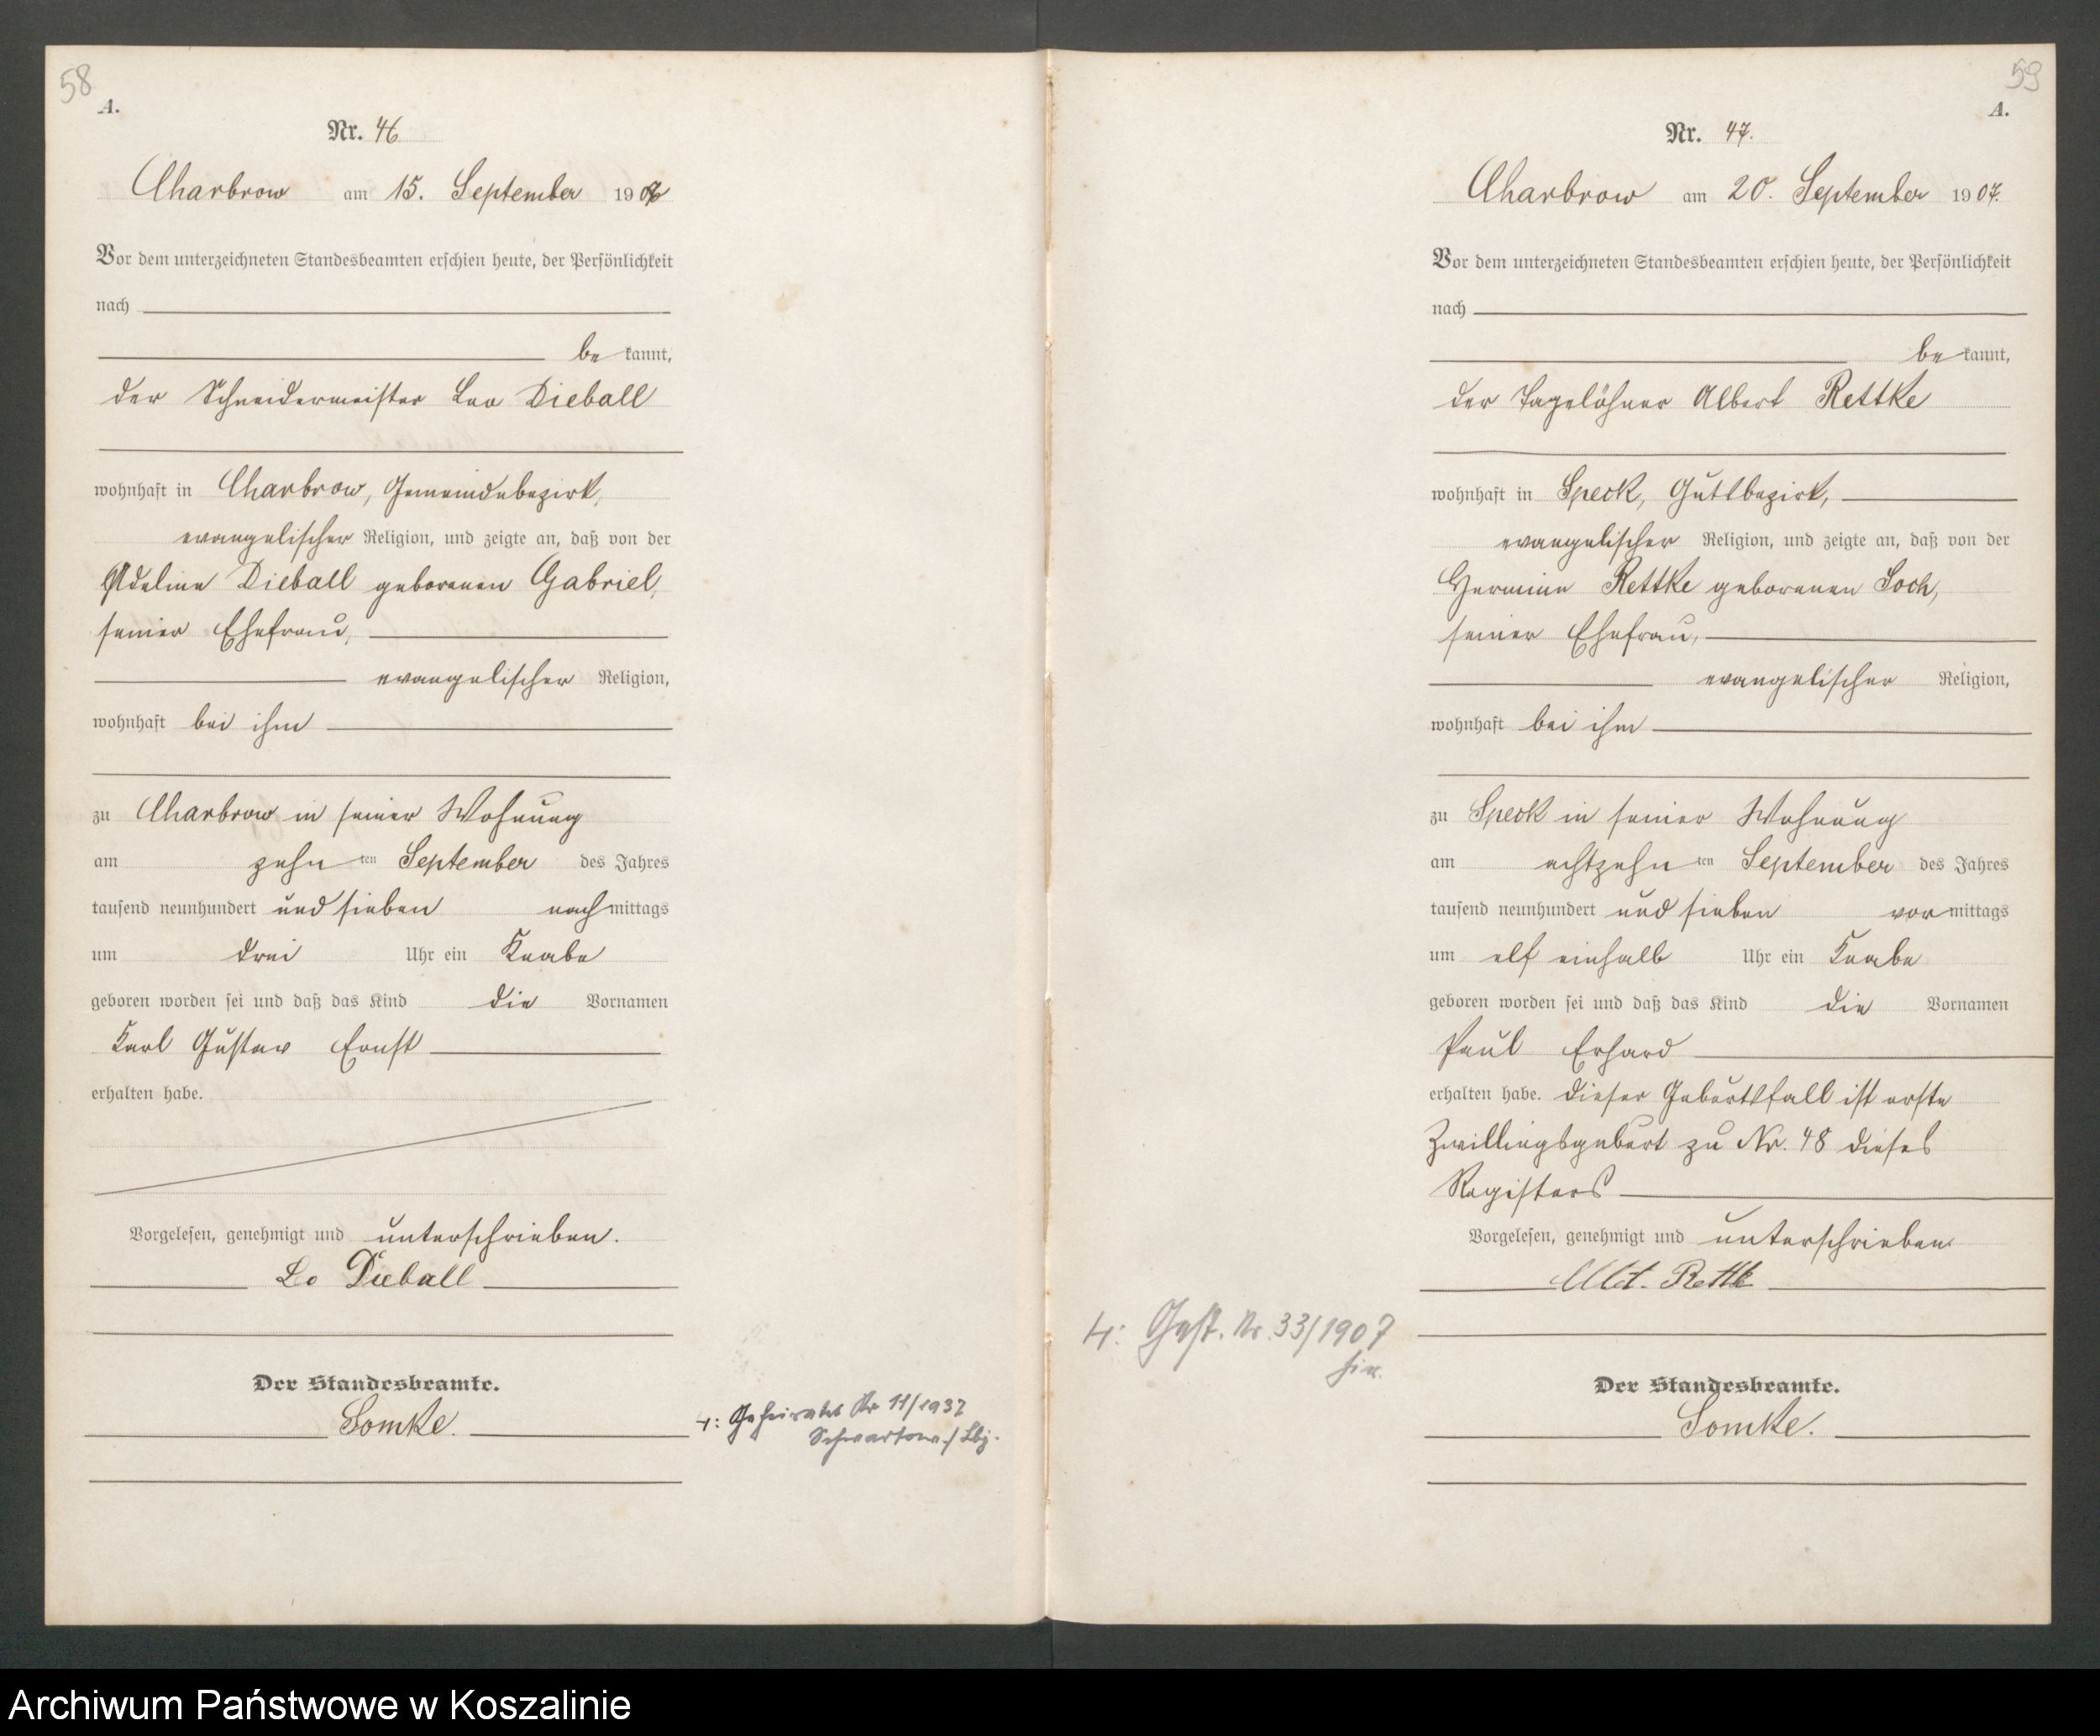 58
A.
Nr. 46
Charbrow am 15. September 1907
Vor dem unterzeichneten Standesbeamten erschien heute, der Persönlichkeit
nach
be kannt,
der Schneidermeister Leo Dieball
wohnhaft in Charbrow, Gemeindebezirk,
evangelischer Religion, und zeigte an, daß von der
Adeline Dieball geborenen Gabriel,
seiner Ehefrau,
evangelischer Religion,
wohnhaft bei ihm
zu Charbrow in seiner Wohnung
am zehn ten September des Jahres
tausend neunhundert und sieben nach mittags
um drei Uhr ein Knabe
geboren worden sei und daß das Kind die Vornamen
Karl Gustav Ernst
erhalten habe.
Vorgelesen, genehmigt und unterschrieben.
Leo Dieball
Der Standesbeamte.
Lomke.
4: Geheiratet Nr 11/1937
Schwartow / Lbg.
59
A.
Nr. 47.
Charbrow am 20. September 1907.
Vor dem unterzeichneten Standesbeamten erschien heute, der Persönlichkeit
nach
be kannt,
der Tagelöhner Albert Rettke
wohnhaft in Speck, Gutsbezirk,
evangelischer Religion, und zeigte an, daß von der
Hermine Rettke geborenen Loch,
seiner Ehefrau,
evangelischer Religion,
wohnhaft bei ihm
zu Speck in seiner Wohnung
am achtzehn ten September des Jahres
tausend neunhundert und sieben vor mittags
um elf einhalb Uhr ein Knabe
geboren worden sei und daß das Kind die Vornamen
Paul Erhard
erhalten habe. Dieser Geburtsfall ist erste
Zwillingsgeburt zu Nr. 48 dieses
Registers
Vorgelesen, genehmigt und unterschrieben
Rettke
4: Gest. Nr. 33/1907
hier.
Der Standesbeamte.
Lomke.
Archiwum Państwowe w Koszalinie